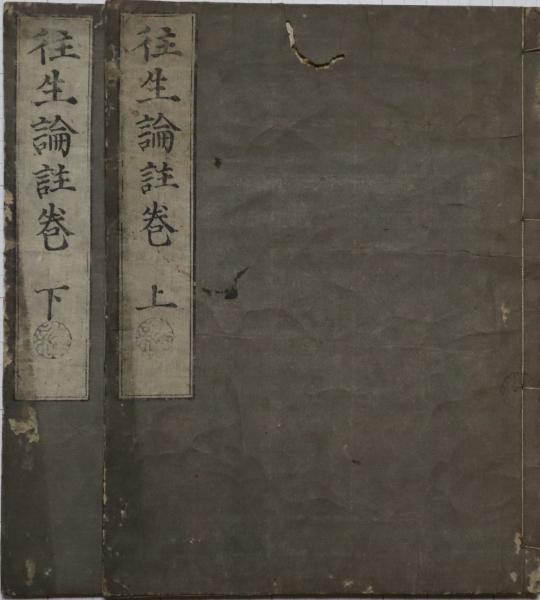 往生論註卷 上
往生論註卷 下